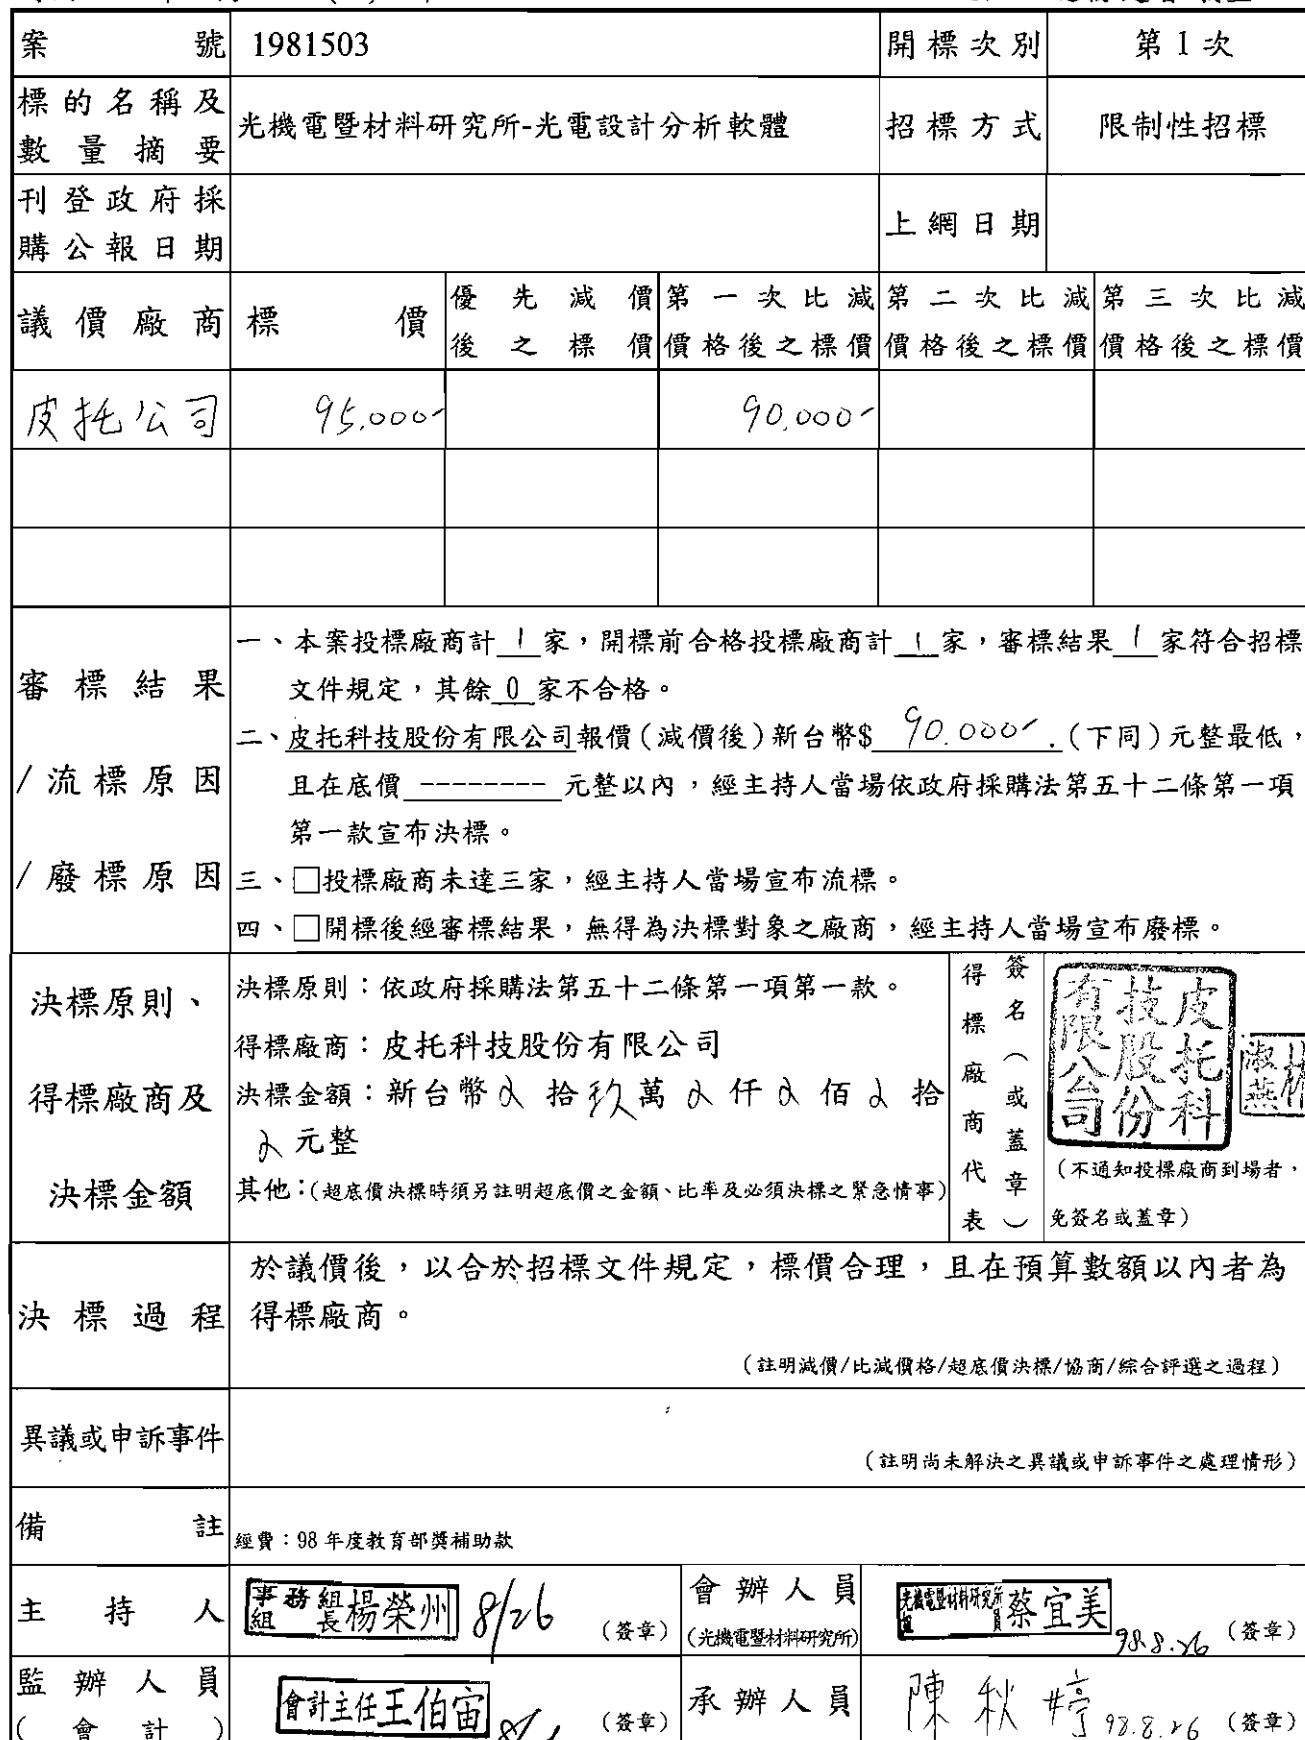 案號 1981503 開標次別 第1次
標的名稱及數量摘要 光機電暨材料研究所-光電設計分析軟體 招標方式 限制性招標
刊登政府採購公報日期 上網日期
議價廠商 標價 優先減價後之標價 第一次比減價格後之標價 第二次比減價格後之標價 第三次比減價格後之標價
皮托公司 95,000- 90,000-
審標結果
/流標原因
/廢標原因
一、本案投標廠商計 1 家,開標前合格投標廠商計 1 家,審標結果 1 家符合招標
文件規定,其餘 0 家不合格。
二、皮托科技股份有限公司報價(減價後)新台幣$ 90,000- .(下同)元整最低,
且在底價 --------- 元整以內,經主持人當場依政府採購法第五十二條第一項
第一款宣布決標。
三、□投標廠商未達三家,經主持人當場宣布流標。
四、□開標後經審標結果,無得為決標對象之廠商,經主持人當場宣布廢標。
決標原則、
得標廠商及
決標金額
決標原則:依政府採購法第五十二條第一項第一款。
得標廠商:皮托科技股份有限公司
決標金額:新台幣 拾玖萬 仟 佰 拾
元整
其他:(超底價決標時須另註明超底價之金額、比率及必須決標之緊急情事)
得標廠商代表
簽名(或蓋章)
皮托科技股份有限公司
淑燕
(不通知投標廠商到場者,
免簽名或蓋章)
決標過程
於議價後,以合於招標文件規定,標價合理,且在預算數額以內者為
得標廠商。
(註明減價/比減價格/超底價決標/協商/綜合評選之過程)
異議或申訴事件
(註明尚未解決之異議或申訴事件之處理情形)
備註 經費:98年度教育部獎補助款
主持人 事務組組長楊榮州 8/26 (簽章)
會辦人員 (光機電暨材料研究所) 光機電暨材料研究所 蔡宜美 98.8.26 (簽章)
監辦人員 (會計) 會計主任王伯宙 (簽章)
承辦人員 陳秋婷 98.8.26 (簽章)